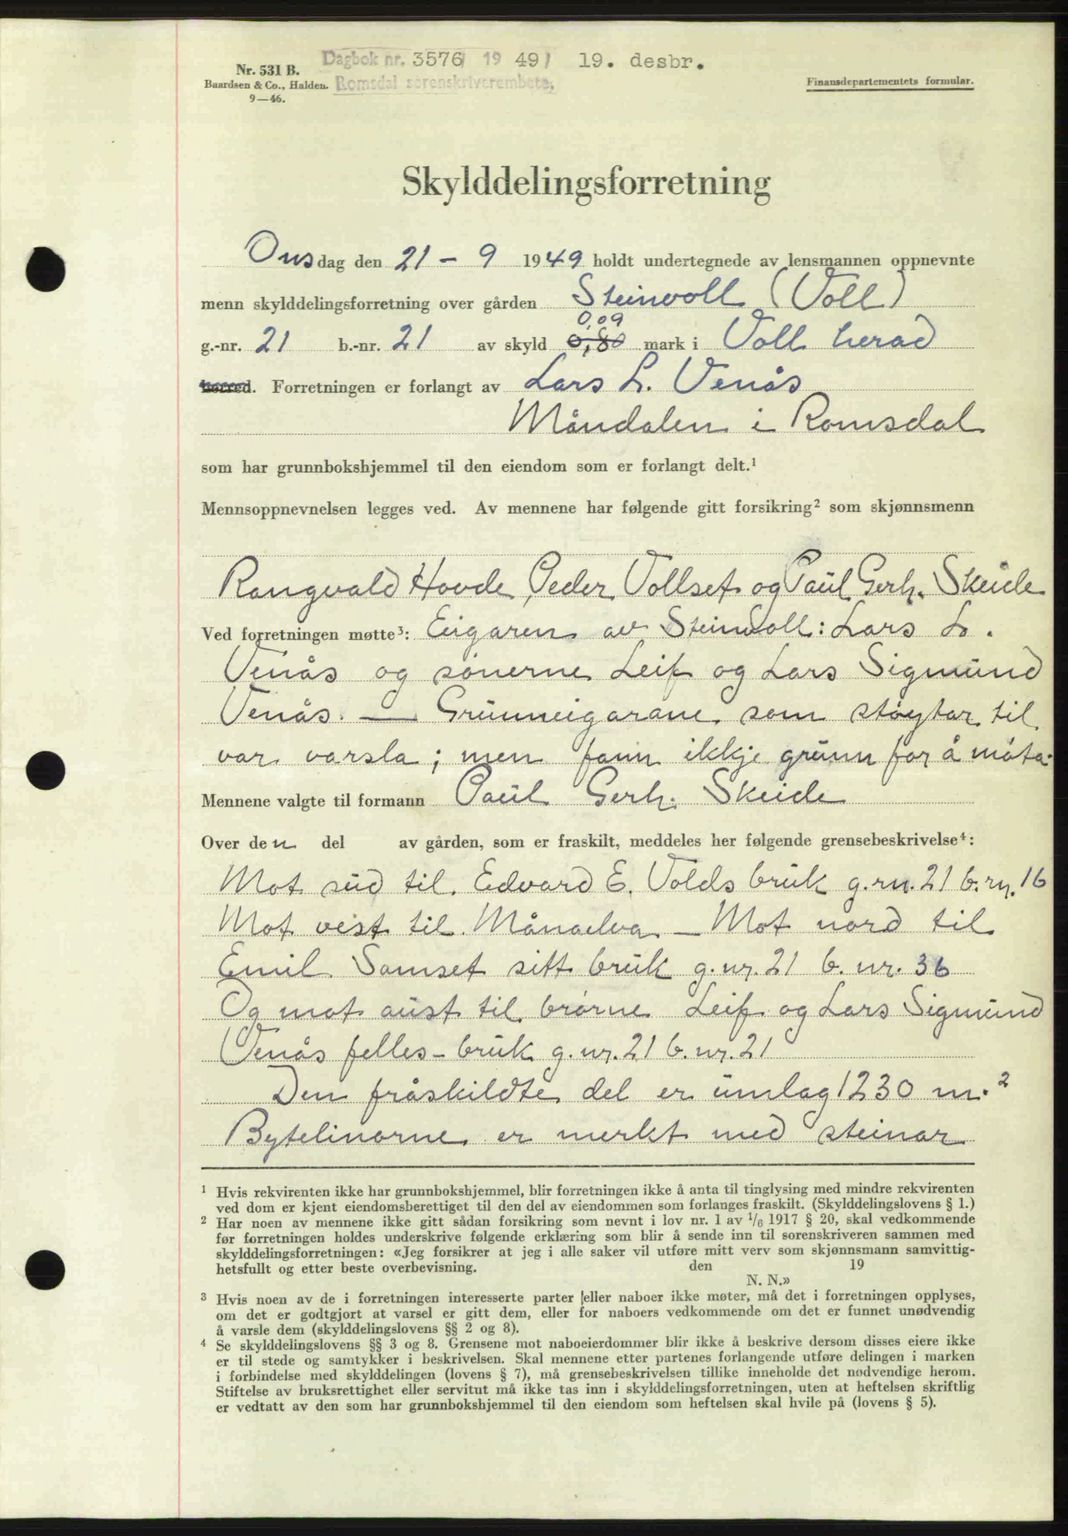 Dagbok nr. 3576/ 19 49/ 19. desbr.
Romsdal sorenskriverembete.
Nr. 531 B.
Baardsen & Co., Halden.
9—46.
Finansdepartementets formular.
Skylddelingsforretning
Onsdag den 21 – 9 1949 holdt undertegnede av lensmannen oppnevnte
menn skylddelingsforretning over gården Steinvoll (Voll)
0,09
g.-nr. 21 b.-nr. 21 av skyld 0,80 mark i Voll herad
herred. Forretningen er forlangt av Lars L. Venås
Måndalen i Romsdal
som har grunnbokshjemmel til den eiendom som er forlangt delt.¹
Mennsoppnevnelsen legges ved. Av mennene har følgende gitt forsikring² som skjønnsmenn
Rangvald Hovde, Peder Vollset og Paul Gerh. Skeide
Ved forretningen møtte³: Eigaren av Steinvoll: Lars L.
Venås og sønerne Leif og Lars Sigmund
Venås. — Grunneigarane som støytar til
var varsla; men fann ikkje grunn for å møta.
Mennene valgte til formann Paul Gerh. Skeide
Over den del av gården, som er fraskilt, meddeles her følgende grensebeskrivelse⁴:
Mot sud til Edvard E. Volds bruk g.nr. 21 b.nr. 16
Mot vest til Månaelva – Mot nord til
Emil Samset sitt bruk g.nr. 21 b.nr. 36
Og mot aust til brørne Leif og Lars Sigmund
Venås felles-bruk g.nr. 21 b.nr. 21
Den fråskildte del er umlag 1230 m.²
Bytelinorne er merkt med steinar
¹ Hvis rekvirenten ikke har grunnbokshjemmel, blir forretningen ikke å anta til tinglysing med mindre rekvirenten
ved dom er kjent eiendomsberettiget til den del av eiendommen som forlanges fraskilt. (Skylddelingslovens § 1.)
² Har noen av mennene ikke gitt sådan forsikring som nevnt i lov nr. 1 av 1/6 1917 § 20, skal vedkommende
før forretningen holdes underskrive følgende erklæring som blir å sende inn til sorenskriveren sammen med
skylddelingsforretningen: «Jeg forsikrer at jeg i alle saker vil utføre mitt verv som skjønnsmann samvittig-
hetsfullt og etter beste overbevisning. den 19
N. N.»
³ Hvis noen av de i forretningen interesserte parter (eller naboer ikke møter, må det i forretningen opplyses,
om det er godtgjort at varsel er gitt dem, eller for naboers vedkommende om det er funnet unødvendig
å varsle dem (skylddelingslovens §§ 2 og 8).
⁴ Se skylddelingslovens §§ 3 og 8. Grensene mot naboeierdommer blir ikke å beskrive dersom disses eiere ikke
er til stede og samtykker i beskrivelsen. Skal mennene etter partenes forlangende utføre delingen i marken
i forbindelse med skylddelingen (lovens § 7), må grensebeskrivelsen tillike inneholde det nødvendige herom.
Stiftelse av bruksrettighet eller servitut må ikke tas inn i skylddelingsforretningen, uten at heftelsen skriftlig
er vedtatt av den som har grunnbokshjemmel til den eiendom som heftelsen skal hvile på (lovens § 5).